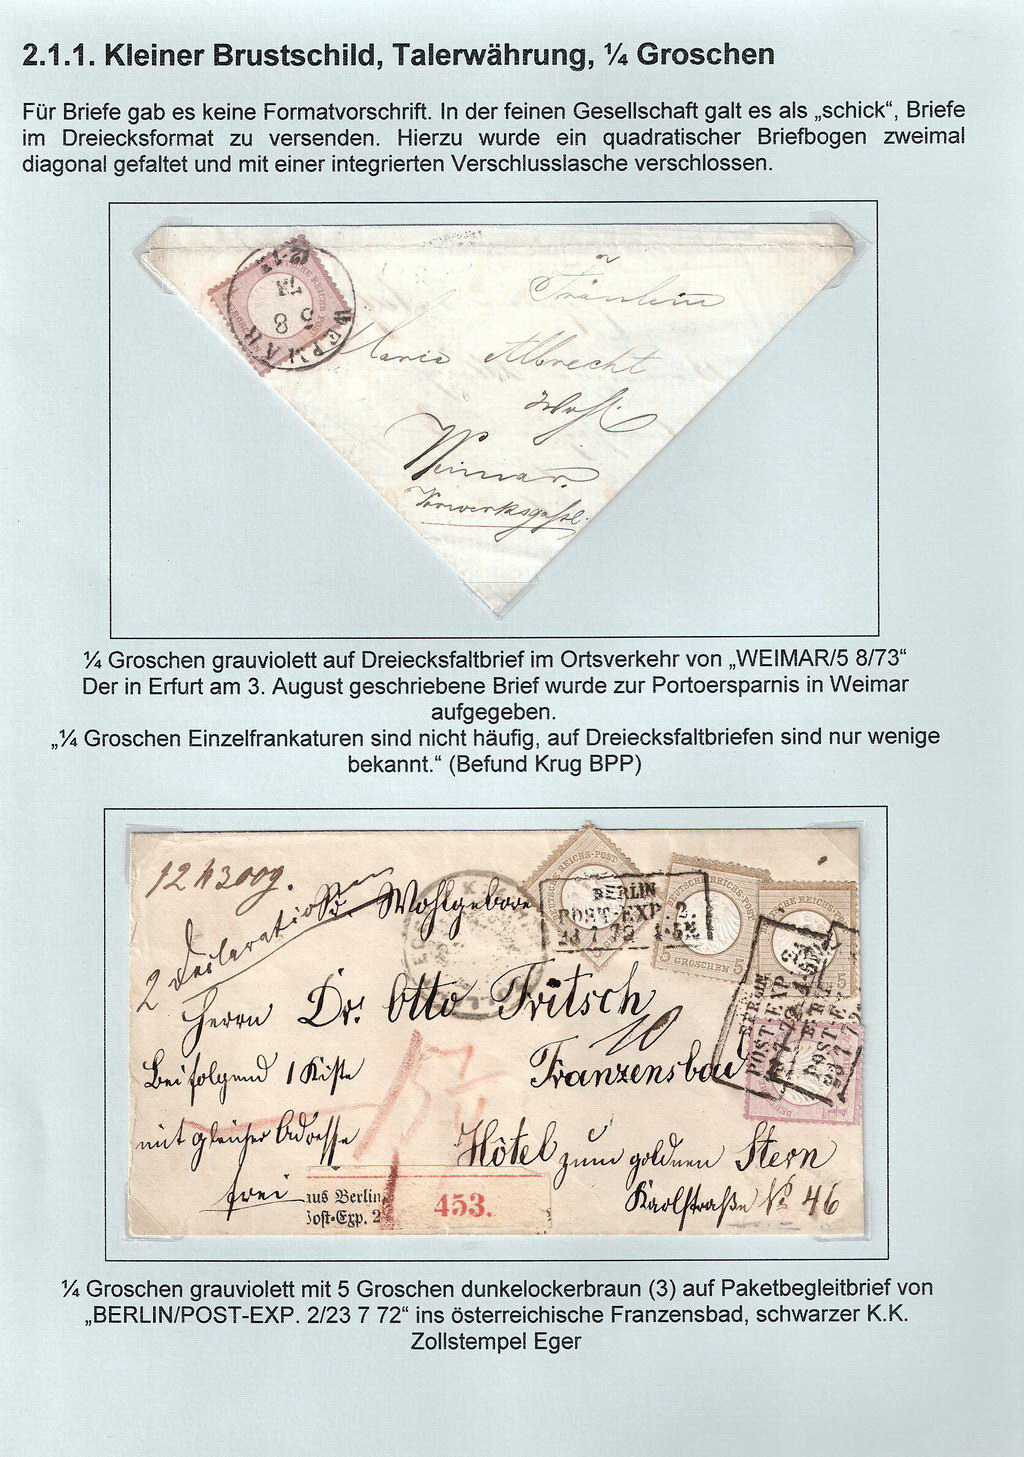 2.1.1. Kleiner Brustschild, Talerwährung, ¼ Groschen
Für Briefe gab es keine Formatvorschrift. In der feinen Gesellschaft galt es als „schick“, Briefe
im Dreiecksformat zu versenden. Hierzu wurde ein quadratischer Briefbogen zweimal
diagonal gefaltet und mit einer integrierten Verschlusslasche verschlossen.
WEIMAR
5 8
73
Fräulein
Marie Albrecht
Wohl
Weimar.
Vorwerksgasse.
¼ Groschen grauviolett auf Dreiecksfaltbrief im Ortsverkehr von „WEIMAR/5 8/73“
Der in Erfurt am 3. August geschriebene Brief wurde zur Portoersparnis in Weimar
aufgegeben.
„¼ Groschen Einzelfrankaturen sind nicht häufig, auf Dreiecksfaltbriefen sind nur wenige
bekannt.“ (Befund Krug BPP)
2 Declarationen
Sr. Wohlgeboren
BERLIN
POST-EXP. 2.
23 7 72
5 GROSCHEN 5
Herrn Dr. Otto Fritsch
10
Beifolgend 1 Kiste
Franzensbad
mit gleicher Adresse
Hôtel zum goldnen Stern
frei
aus Berlin
Post-Exp. 2
453.
Karlstraße No 46
BERLIN
POST-EXP
¼ Groschen grauviolett mit 5 Groschen dunkelockerbraun (3) auf Paketbegleitbrief von
„BERLIN/POST-EXP. 2/23 7 72“ ins österreichische Franzensbad, schwarzer K.K.
Zollstempel Eger